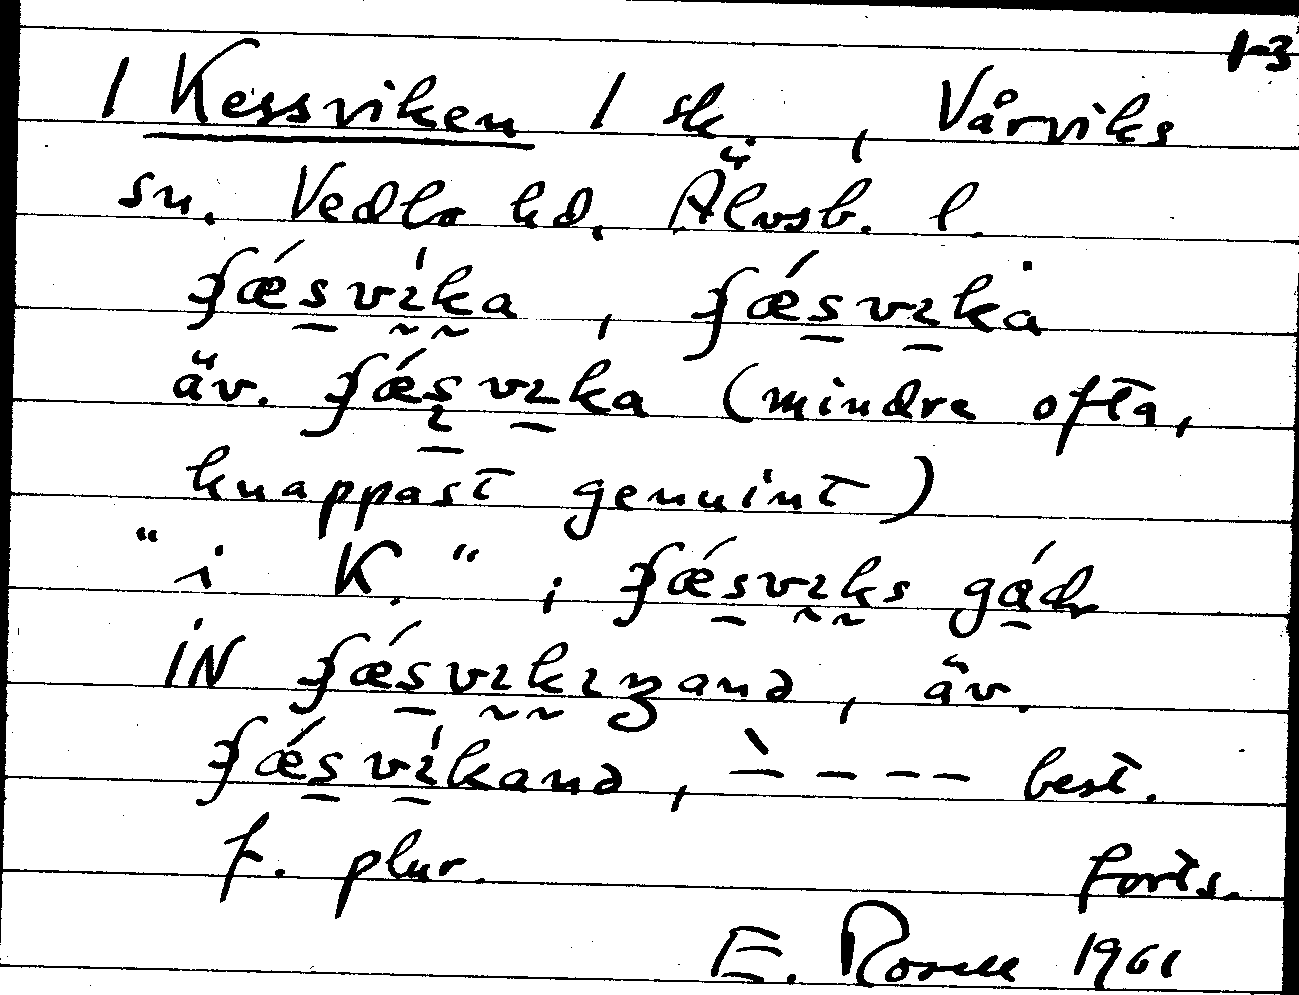 1-3
/ Kessviken / sk., Vårviks
sn. Vedbo hd. Älvsb. l.
ʄǽsvi̍ka, ʄǽsvıka
äv. ʄǽsvıka (mindre ofta,
knappast genuint)
"i K."; ʄǽsvıks gádn
iN ʄǽsvıkıŋanə, äv.
ʄǽsvi̍kanə, ̀- - - - best.
f. plur. forts.
E. Rosell 1961